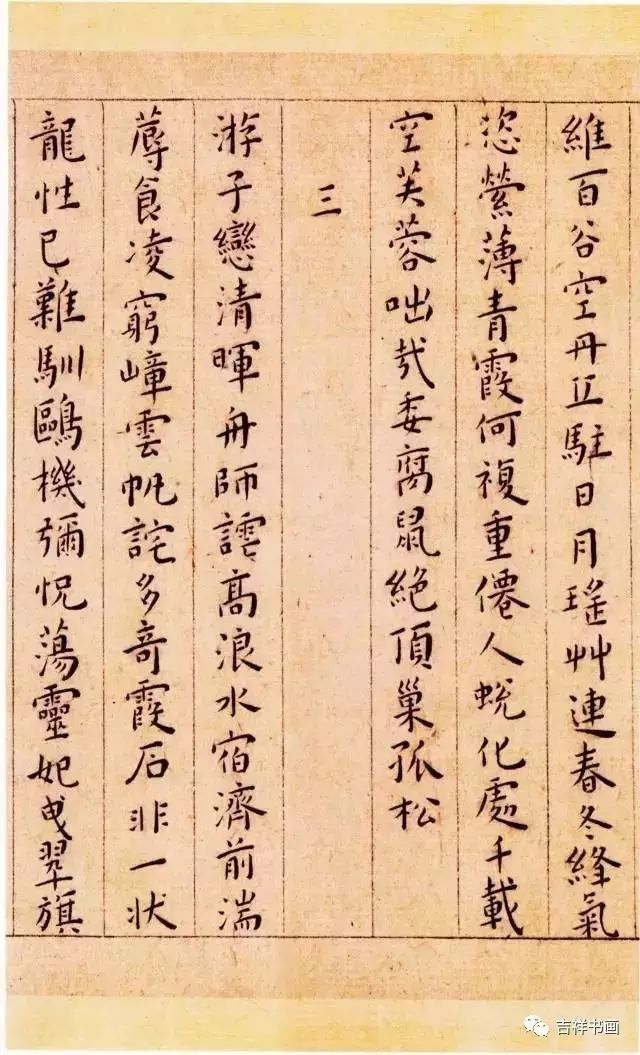 維百谷空丹丘駐日月瑤艸連春冬絳氣
恣縈薄青霞何複重僊人蛻化處千載
空芙蓉咄哉委腐鼠絕頂巢孤松
三
游子戀清暉舟師譹高浪水宿濟前湍
蓐食凌窮嶂雲帆詫多奇霞石非一狀
龍性已難馴鷗機彌怳蕩靈妃曳翠旗
吉祥书画